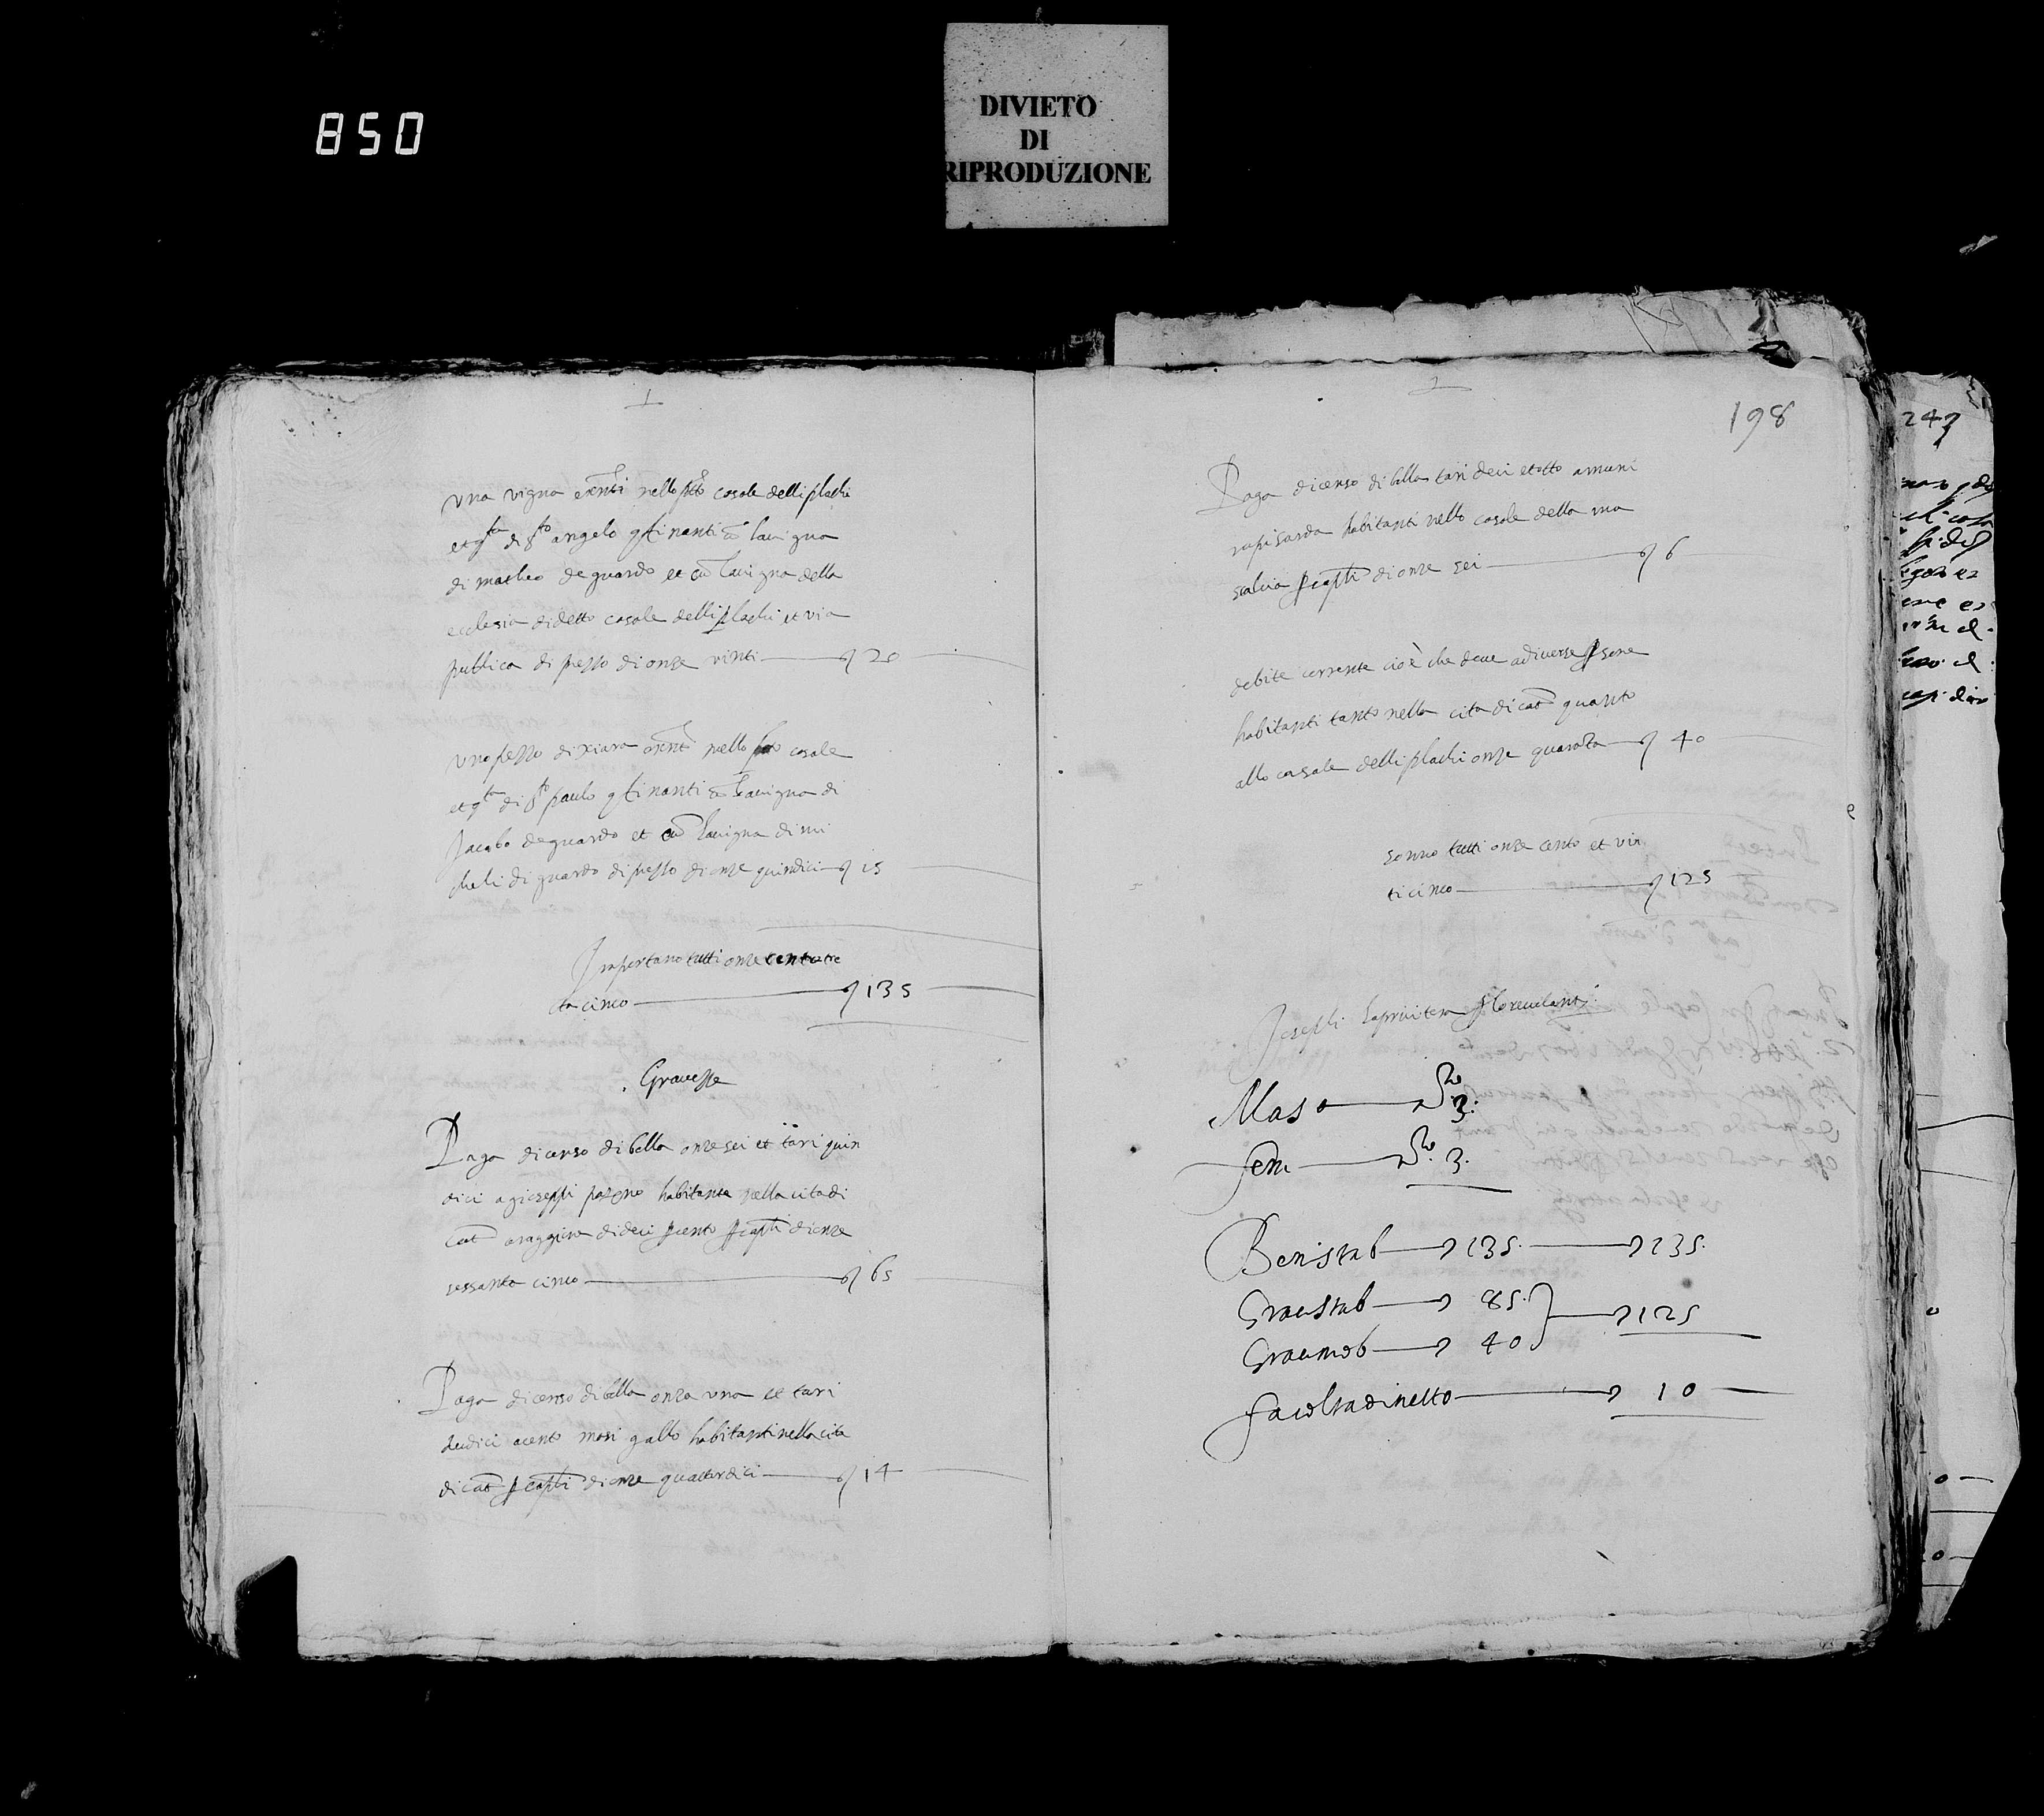 850
DIVIETO
DI
RIPRODUZIONE
una vigna existenti nello ptto casale delli plachi
et qta di sto angelo q finanti cũ la vigna
di matheo de guardo et cũ la vigna della
ecclesia di detto casale delli plachi et via
publica di prezzo di onze vinti 20
uno pezzo di xiara nello casale
et qta di sto paulo q finanti cũ la vigna di
Jacobo de guardo et cũ la vigna di mi
cheli di guardo di prezzo di onze quindici 15
Importano tutti onze cento tre
ta cinco 135
Gravezze
Paga di censo di bolla onze sei et tari quin
dici a gioseppi habitante nella cita di
Cat a raggine di deci p cento p capli di onze
sessanta cinco 65
Paga di censo di bolla onza una et tari
dudici a masi gallo habitanti nella cita
di cat p capli di onze quattordici 14
198
Paga di censo di bolla tari deci et otto a muni
rapisarda habitanti nello casale della ma
scalcia p capli di onze sei 6
debite corrente cioè che deve a diverse psone
habitanti tanto nella cita di cat quanto
allo casale delli plachi onze quarata 40
sonno tutti onze cento et vin
ti cinco 125
Joseppi
Maso 3.
fem 3.
Beni stab 135. 135.
Grav stab 85. 125
Grav mob 40
facolta di netto 10
247